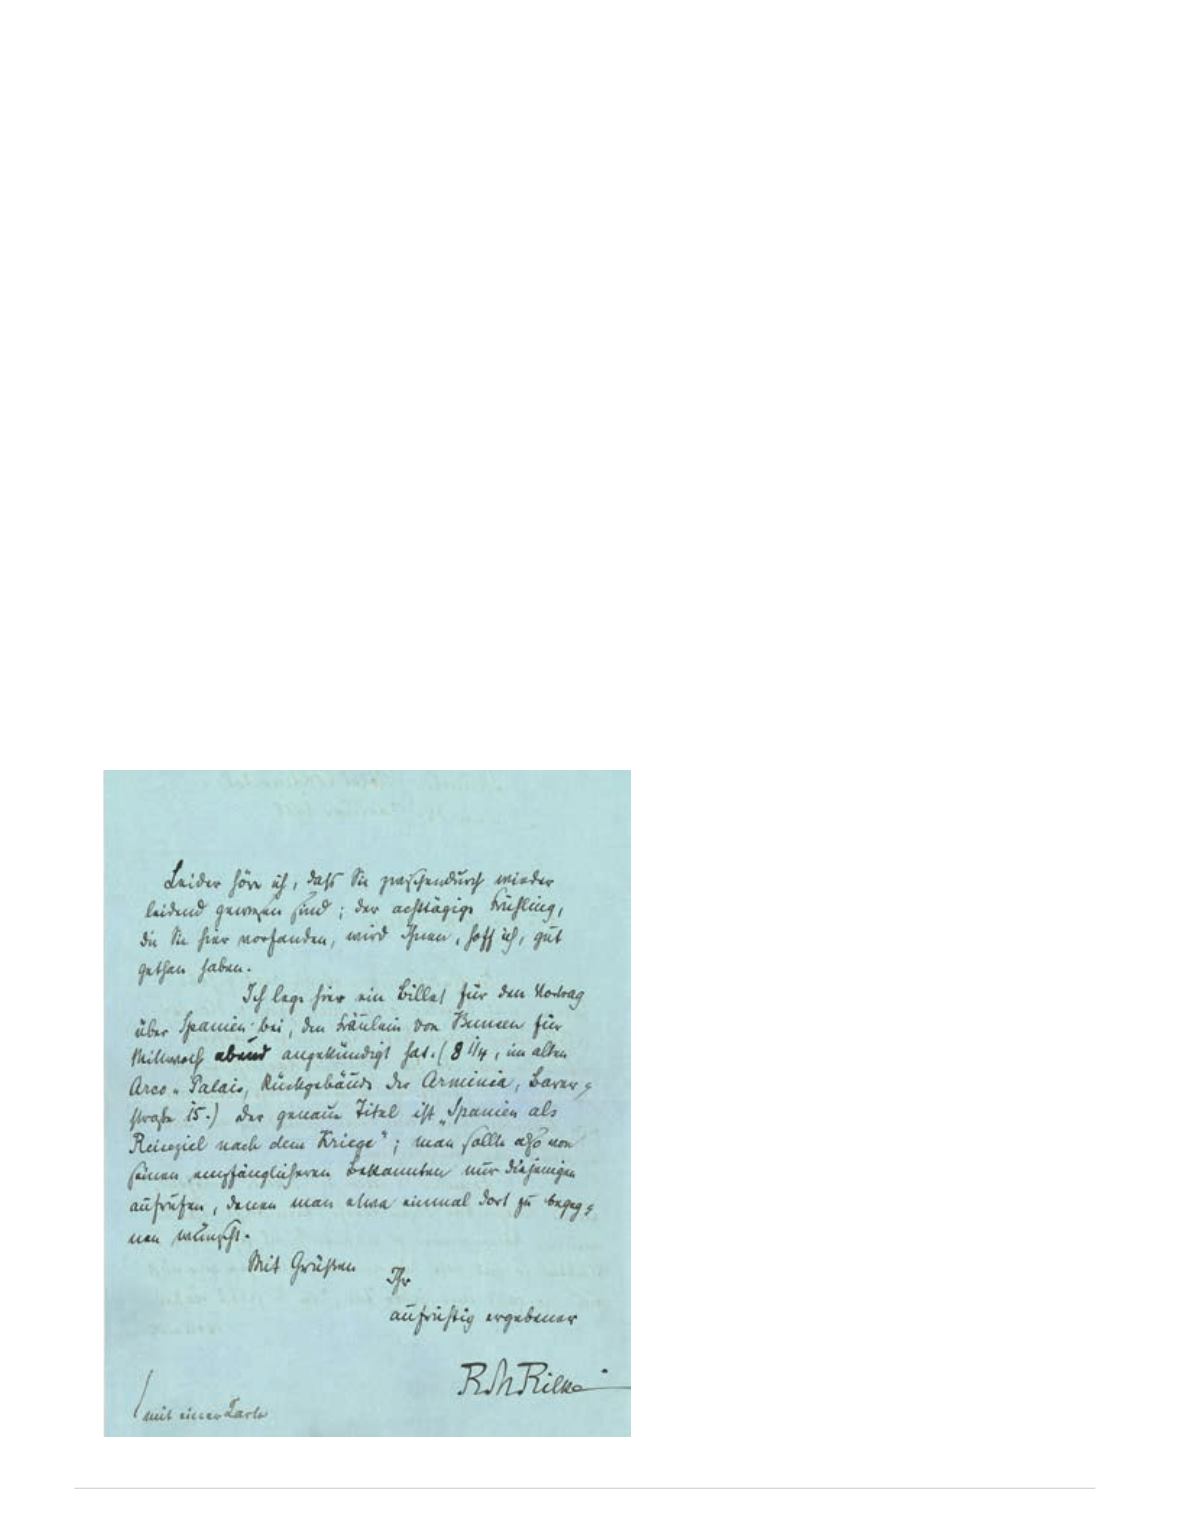 Leider höre ich, daß Sie zwischendurch wieder
leidend gewesen sind; der achttägige Frühling,
die Sie hier vorfanden, wird Ihnen, hoff ich, gut
gethan haben.
Ich lege hier ein Billet für den Vortrag
über Spanien bei, den Fräulein von Bunsen für
Mittwoch abend angekündigt hat. (8 1/4, im alten
Arco-Palais, Rückgebäude der Arminia, Barer-
straße 15.) Der genaue Titel ist „Spanien als
Reiseziel nach dem Kriege"; man sollte also von
seinen empfänglicheren Bekannten nur diejenigen
aufrufen, denen man etwa einmal dort zu begeg-
nen wünscht.
Mit Grüßen
Ihr
aufrichtig ergebener
RM Rilke
mit einer Karte